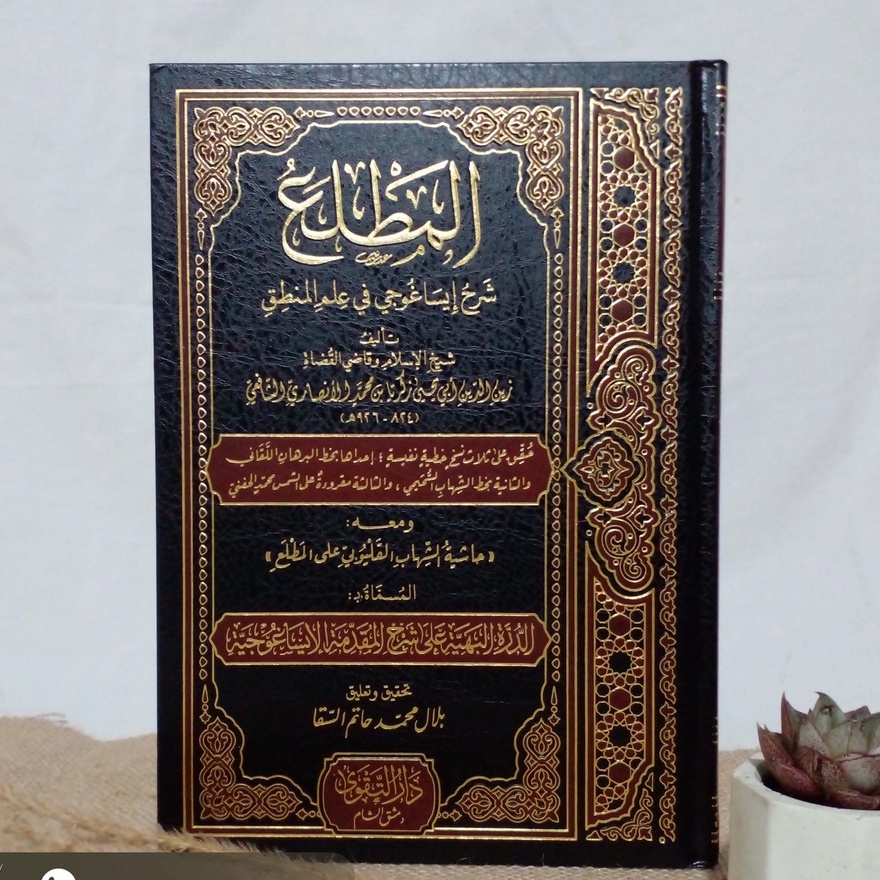 المَطْلَعُ
شَرْحُ إِيسَاغُوجِي فِي عِلْمِ المَنْطِقِ
تأليف
شيخ الإسلام وقاضي القُضاة
زين الدين أبي يحيى زكريا بن محمد الأنصاري الشافعي
(٨٢٤ - ٩٢٦هـ)
حُقِّق على ثلاث نسخ خطية نفيسة ؛ إحداها بخط البرهان اللَّقَاني
والثانية بخط الشِّهاب السُّحيمي ، والثالثة مقروءة على الشمس محمد الحفني
ومعه :
« حاشية الشِّهاب القَلْيُوبي على المَطْلَع »
المُسمَّاة بـ :
الدُّرَّة البَهيَّة عَلى شَرْح المُقَدِّمَة الإيسَاغُوجيَّة
تحقيق وتعليق
بلال محمد حاتم السَّقا
دَارُ التَّقْوَى
دمشق الشام